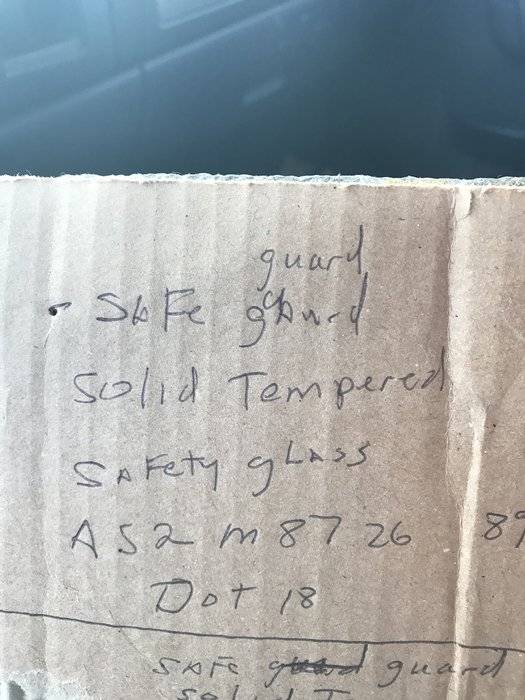 guard
SAFe gaurd
Solid Tempered
SAFety gLASS
AS2 M 87 26 89
Dot 18
SAFe guard
Solid T